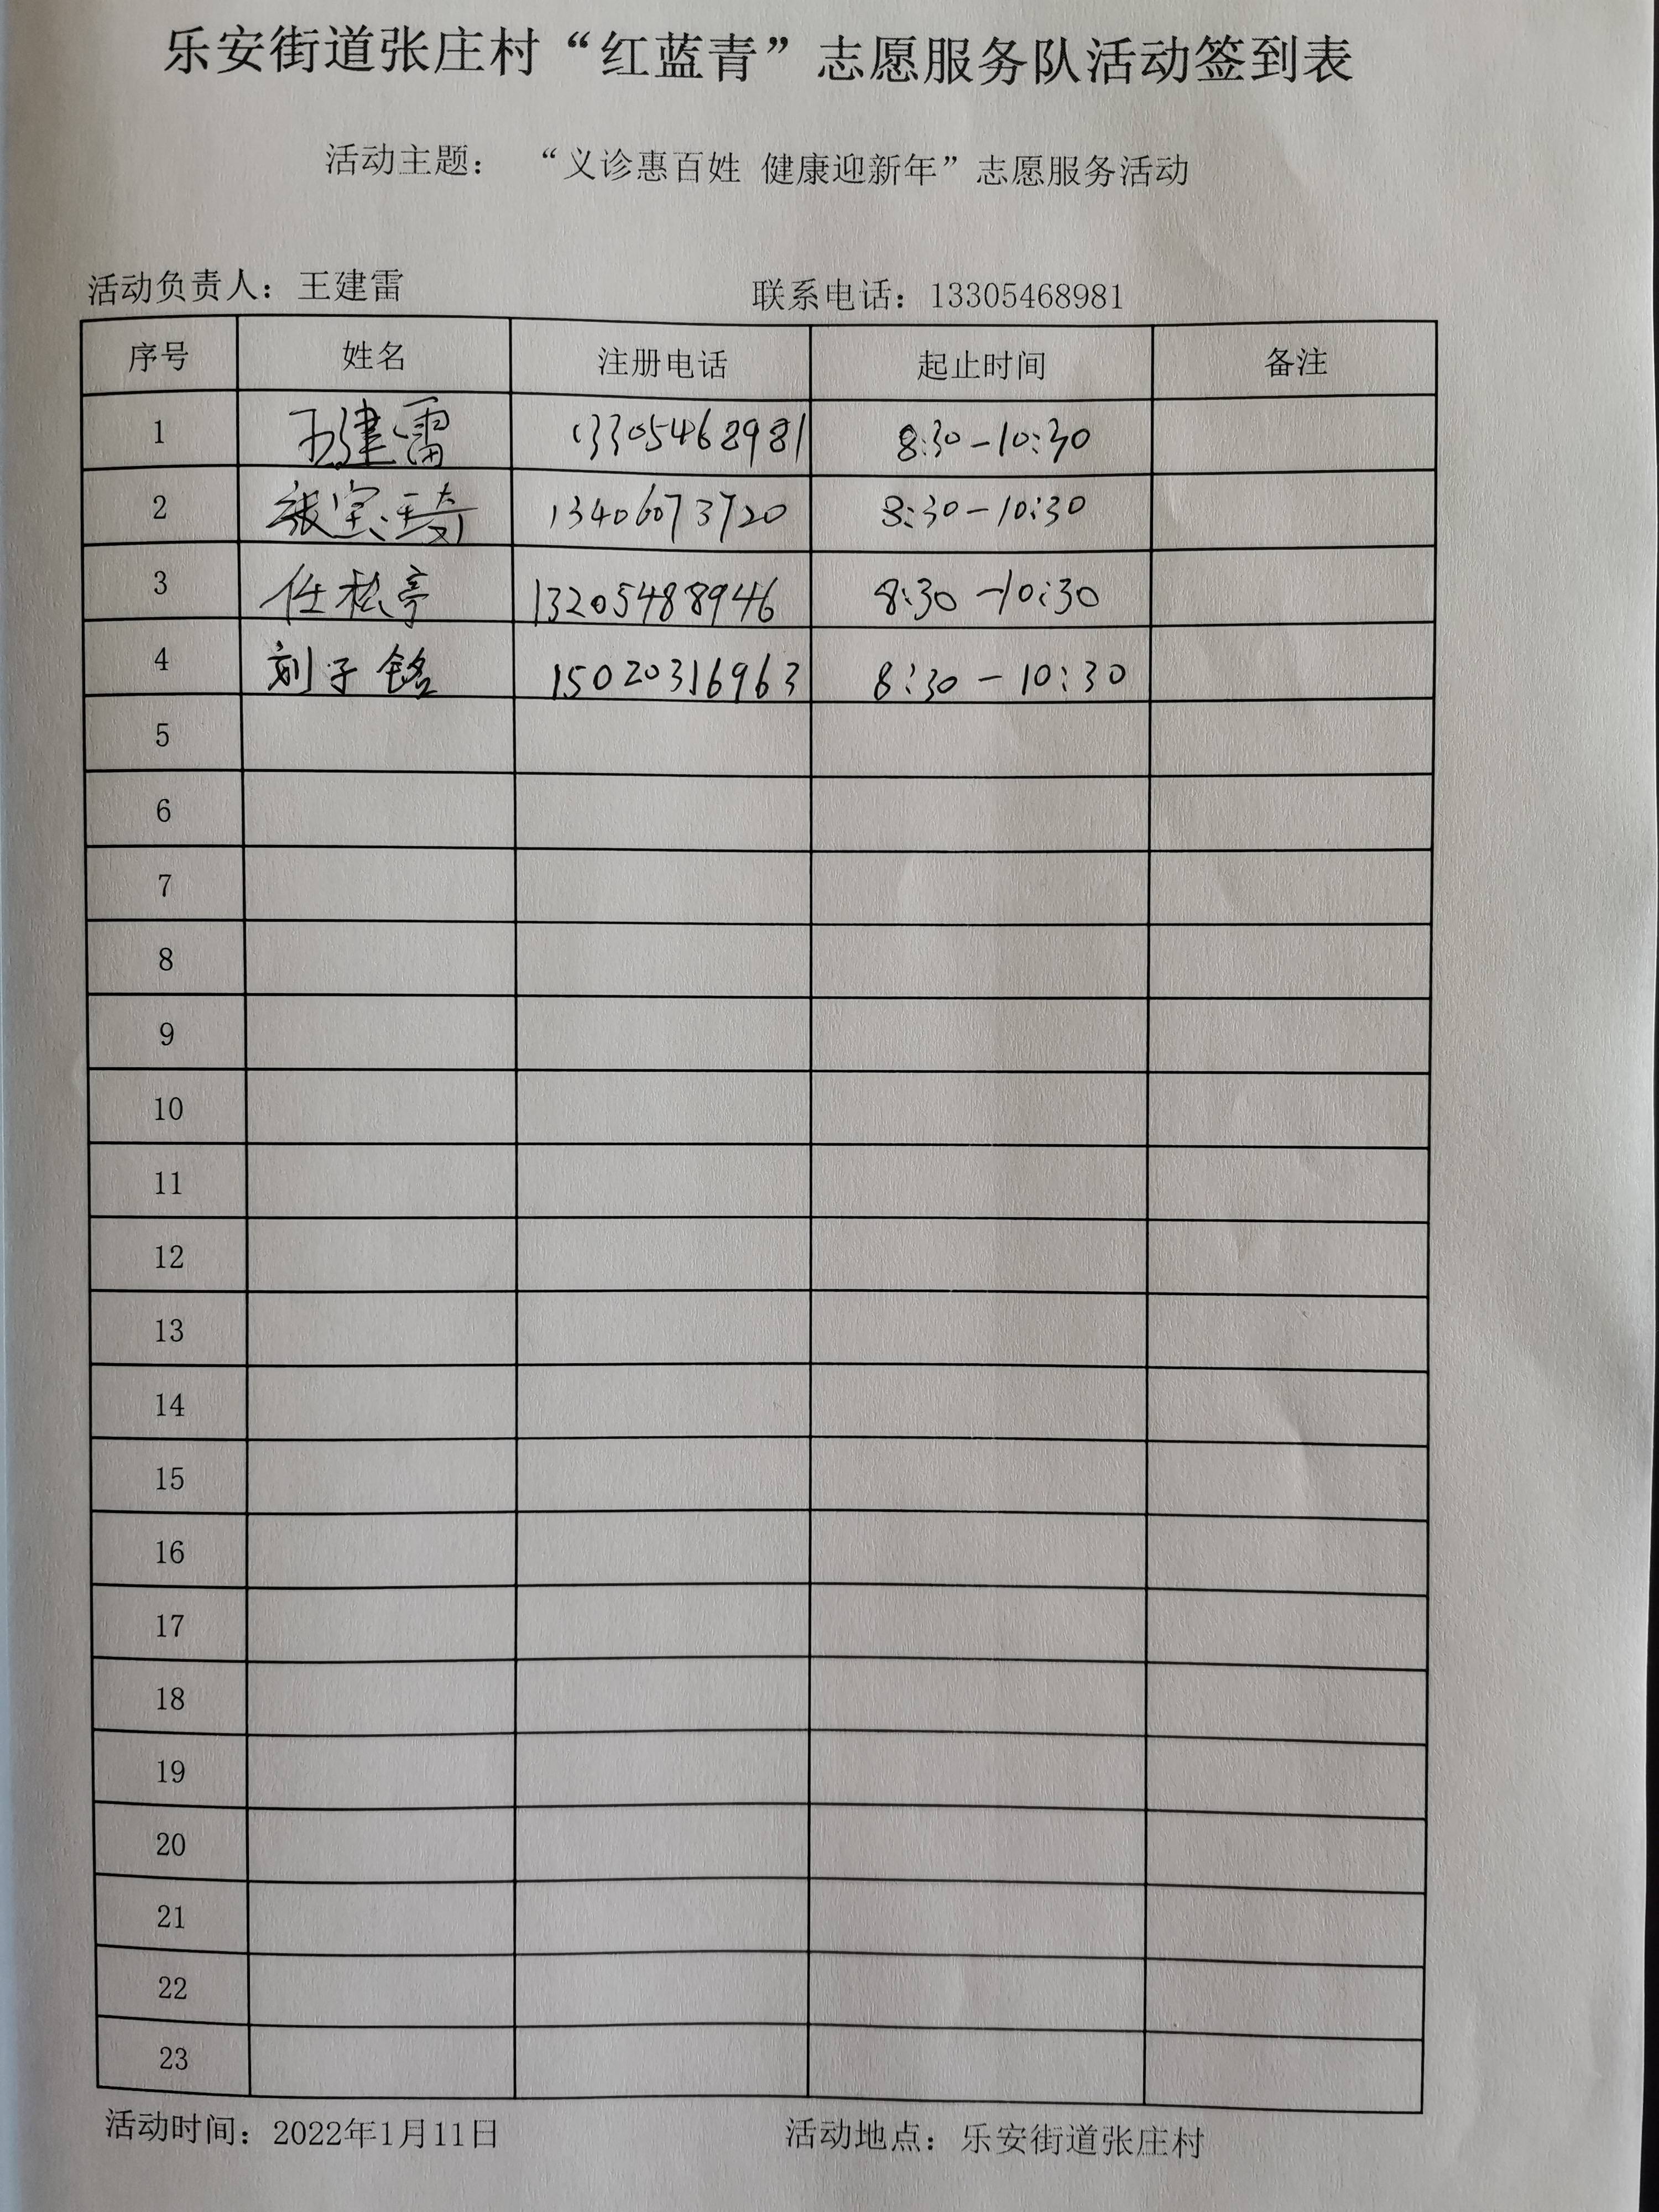 乐安街道张庄村“红蓝青”志愿服务队活动签到表
活动主题： “义诊惠百姓 健康迎新年”志愿服务活动
活动负责人：王建雷 联系电话：13305468981
序号 姓名 注册电话 起止时间 备注
1 王建雷 13305468981 8:30-10:30
2 张宝琦 13406073720 8:30-10:30
3 任松亭 13205488946 8:30-10:30
4 刘子铭 15020316963 8:30-10:30
5
6
7
8
9
10
11
12
13
14
15
16
17
18
19
20
21
22
23
活动时间：2022年1月11日 活动地点：乐安街道张庄村